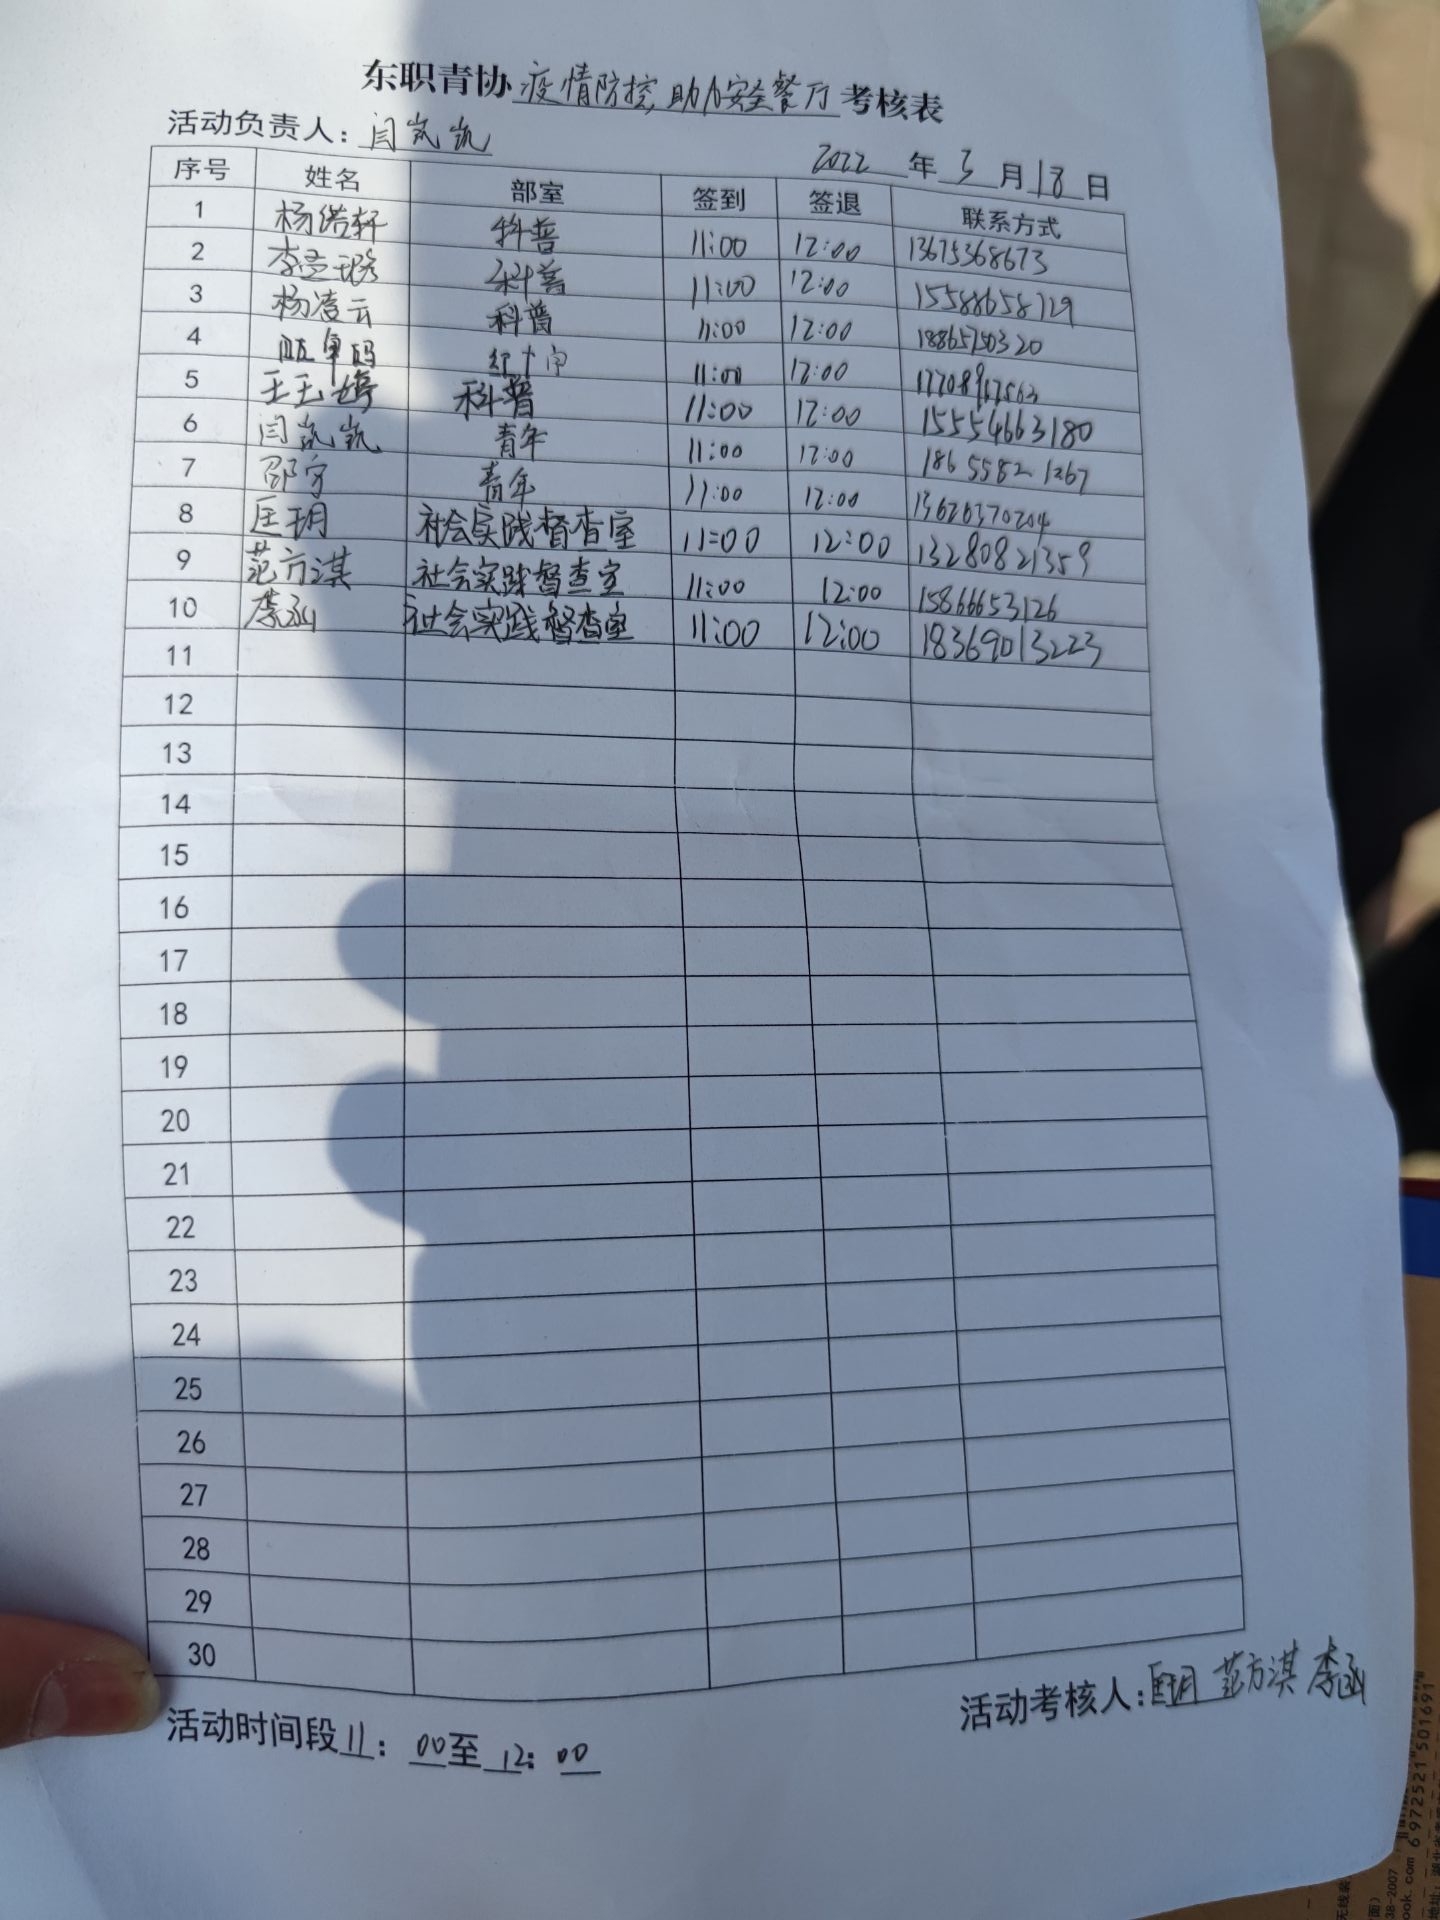 东职青协疫情防控,助力安全餐厅考核表
活动负责人：闫岚凯
2022年3月18日
序号 姓名 部室 签到 签退 联系方式
1 杨偌轩 科普 11:00 12:00 13675368673
2 李孟璐 科普 11:00 12:00 15588658729
3 杨凌云 科普 11:00 12:00 18865750320
4 红十字 11:00 12:00 17708917563
5 王玉婷 科普 11:00 12:00 15554663180
6 闫岚凯 青年 11:00 12:00 18655821267
7 邵宇 青年 11:00 12:00 13626370204
8 匡玥 社会实践督查室 11:00 12:00 13280821359
9 范方淇 社会实践督查室 11:00 12:00 15866653126
10 李函 社会实践督查室 11:00 12:00 18369013223
11
12
13
14
15
16
17
18
19
20
21
22
23
24
25
26
27
28
29
30
活动考核人：匡玥 范方淇 李函
活动时间段11：00至12：00
6972521501691
38-2007
ook.com